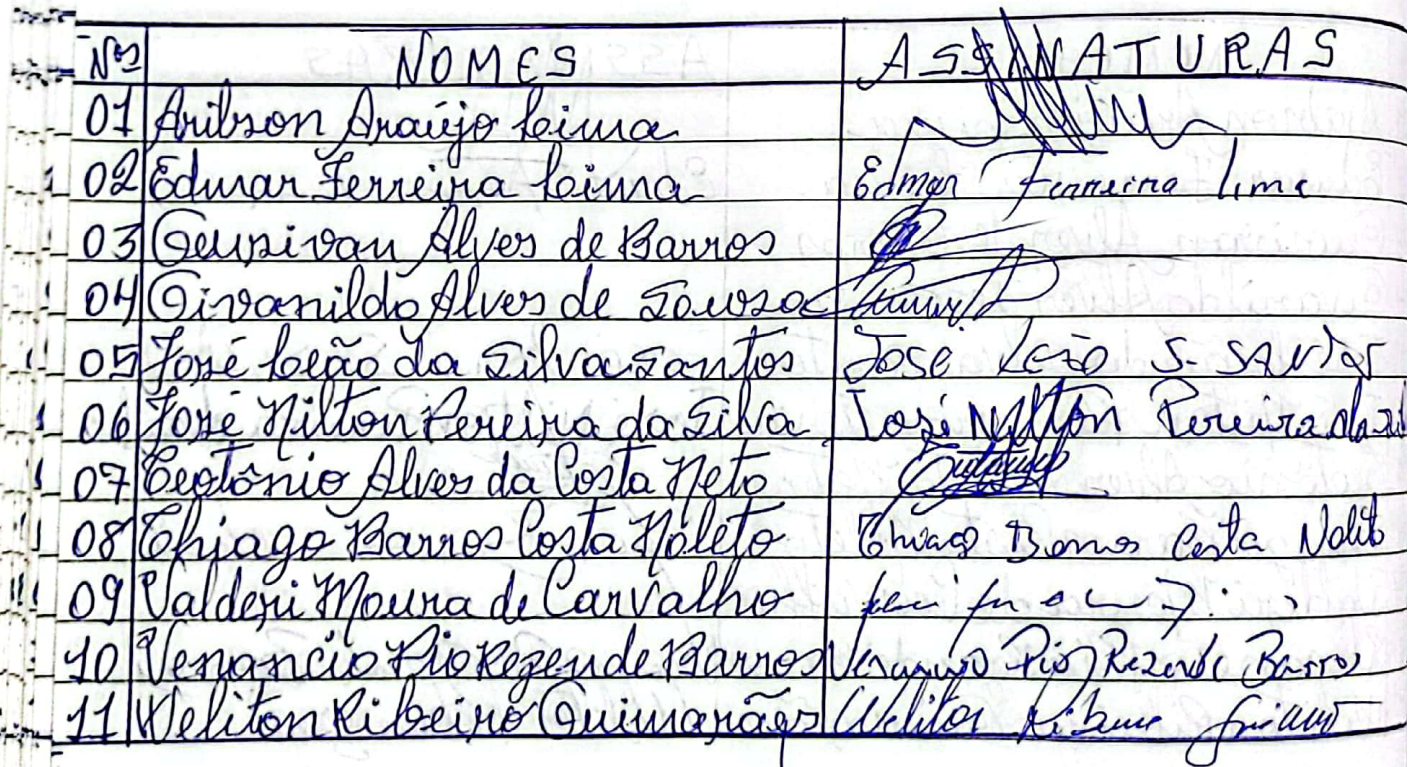 Nos NOMES ASSINATURAS
01 Arilson Araújo Lima
02 Edmar Ferreira Lima Edmar Ferreira lima
03 Geusivan Alves de Barros
04 Givanildo Alves de Souza
05 José Leão da Silva Santos José Leão S. SANTOS
06 José Nilton Pereira da Silva José Nilton Pereira da Sil
07 Teotônio Alves da Costa Neto
08 Thiago Barros Costa Noleto Thiago Barros Costa Noleto
09 Valderi Moura de Carvalho
10 Venancio Pio Rezende Barros Venancio Pio Rezende Barros
11 Weliton Ribeiro Guimarães Weliton Ribeiro